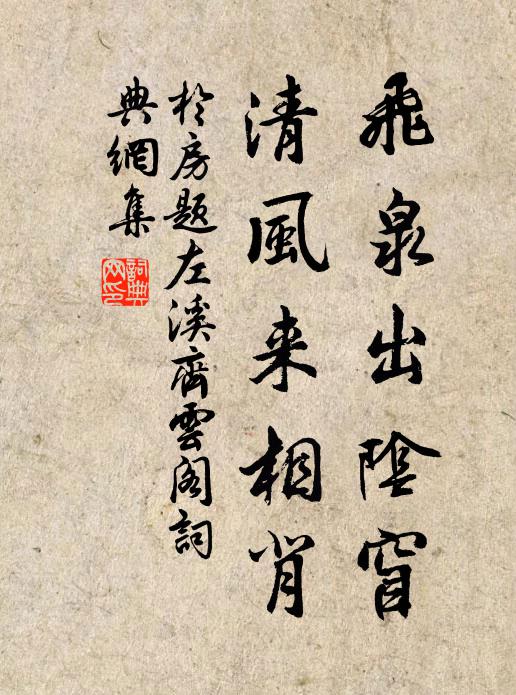 飛泉出陰窅
清風来相肖
於房題左溪齊雲閣詞
典網集
詞典
网印